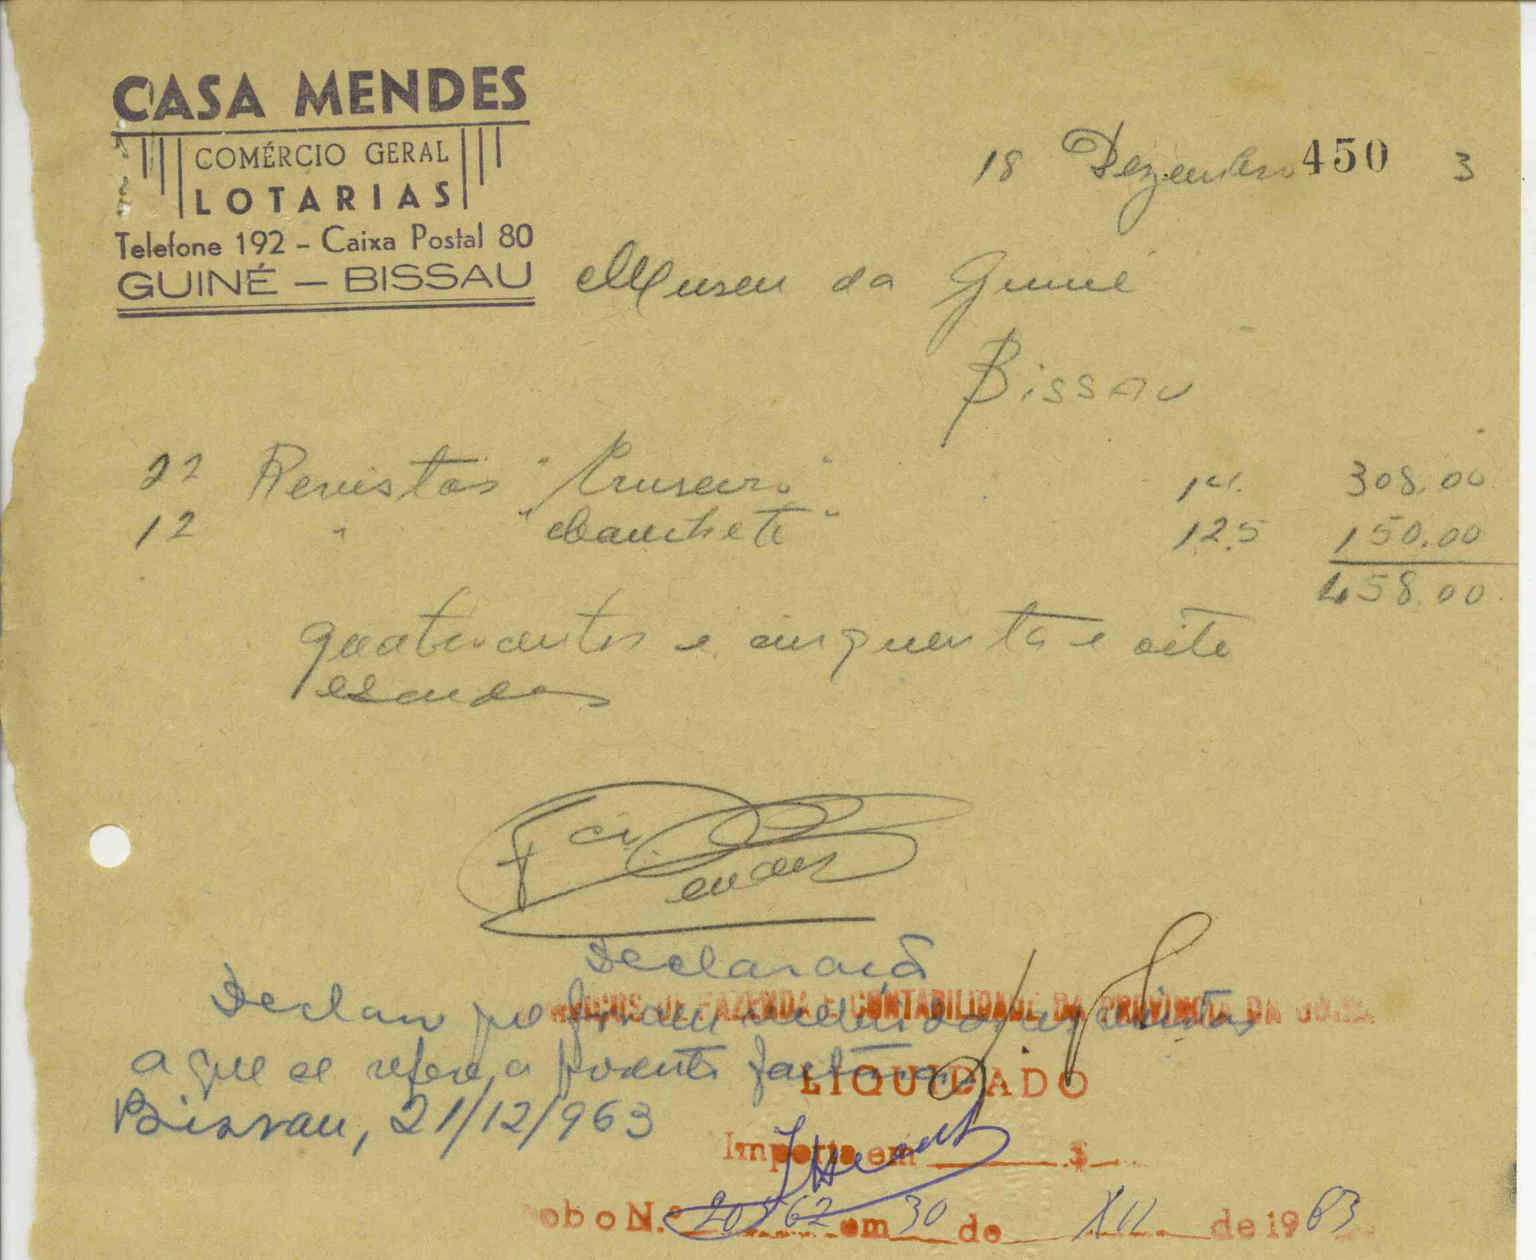 CASA MENDES
COMÉRCIO GERAL
LOTARIAS
Telefone 192 - Caixa Postal 80
GUINÉ - BISSAU
18 Dezembro 450 3
Museu da Guiné
Bissau
22 Revistas "Cruseiro" 14. 308.00
12 " "Manchete" 12.5 150.00
458.00
quatrocentos e cinquenta e oito
escudos
Declaração
Declaro que foram recebidos
SERVIÇOS DE FAZENDA E CONTABILIDADE DA PROVÍNCIA DA GUINÉ
a que se refere a presente factura
LIQUIDADO
Bissau, 21/12/963
Importa em $
N.º em 30 de XII de 1963